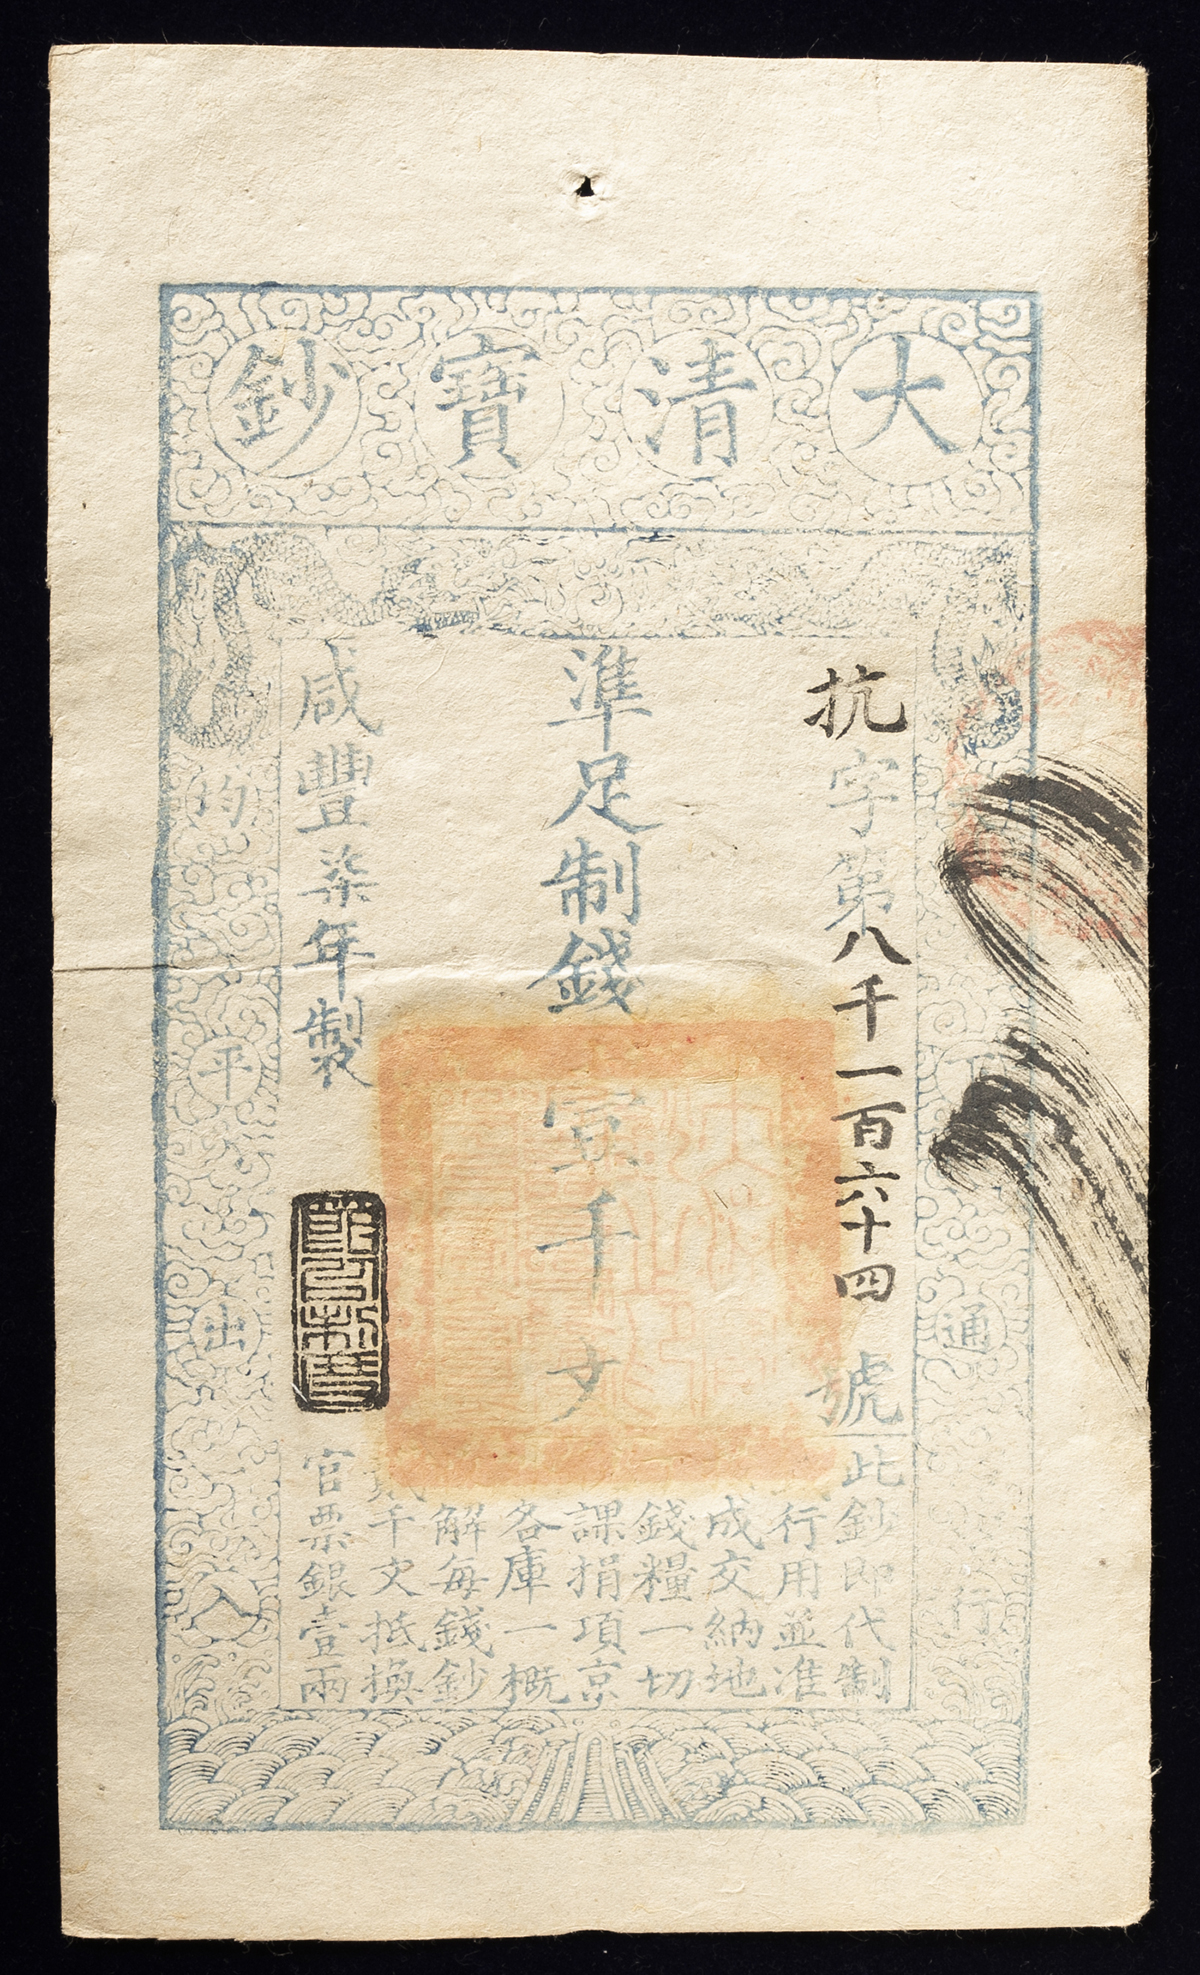 大清寶鈔
抗字第八千一百六十四號
準足制錢壹千文
咸豐柒年製
通行
均平出入
此鈔即代制
行用並准
成交納地
錢糧一切
課捐項京
各庫一概
解每錢鈔
貳千文抵換
官票銀壹兩